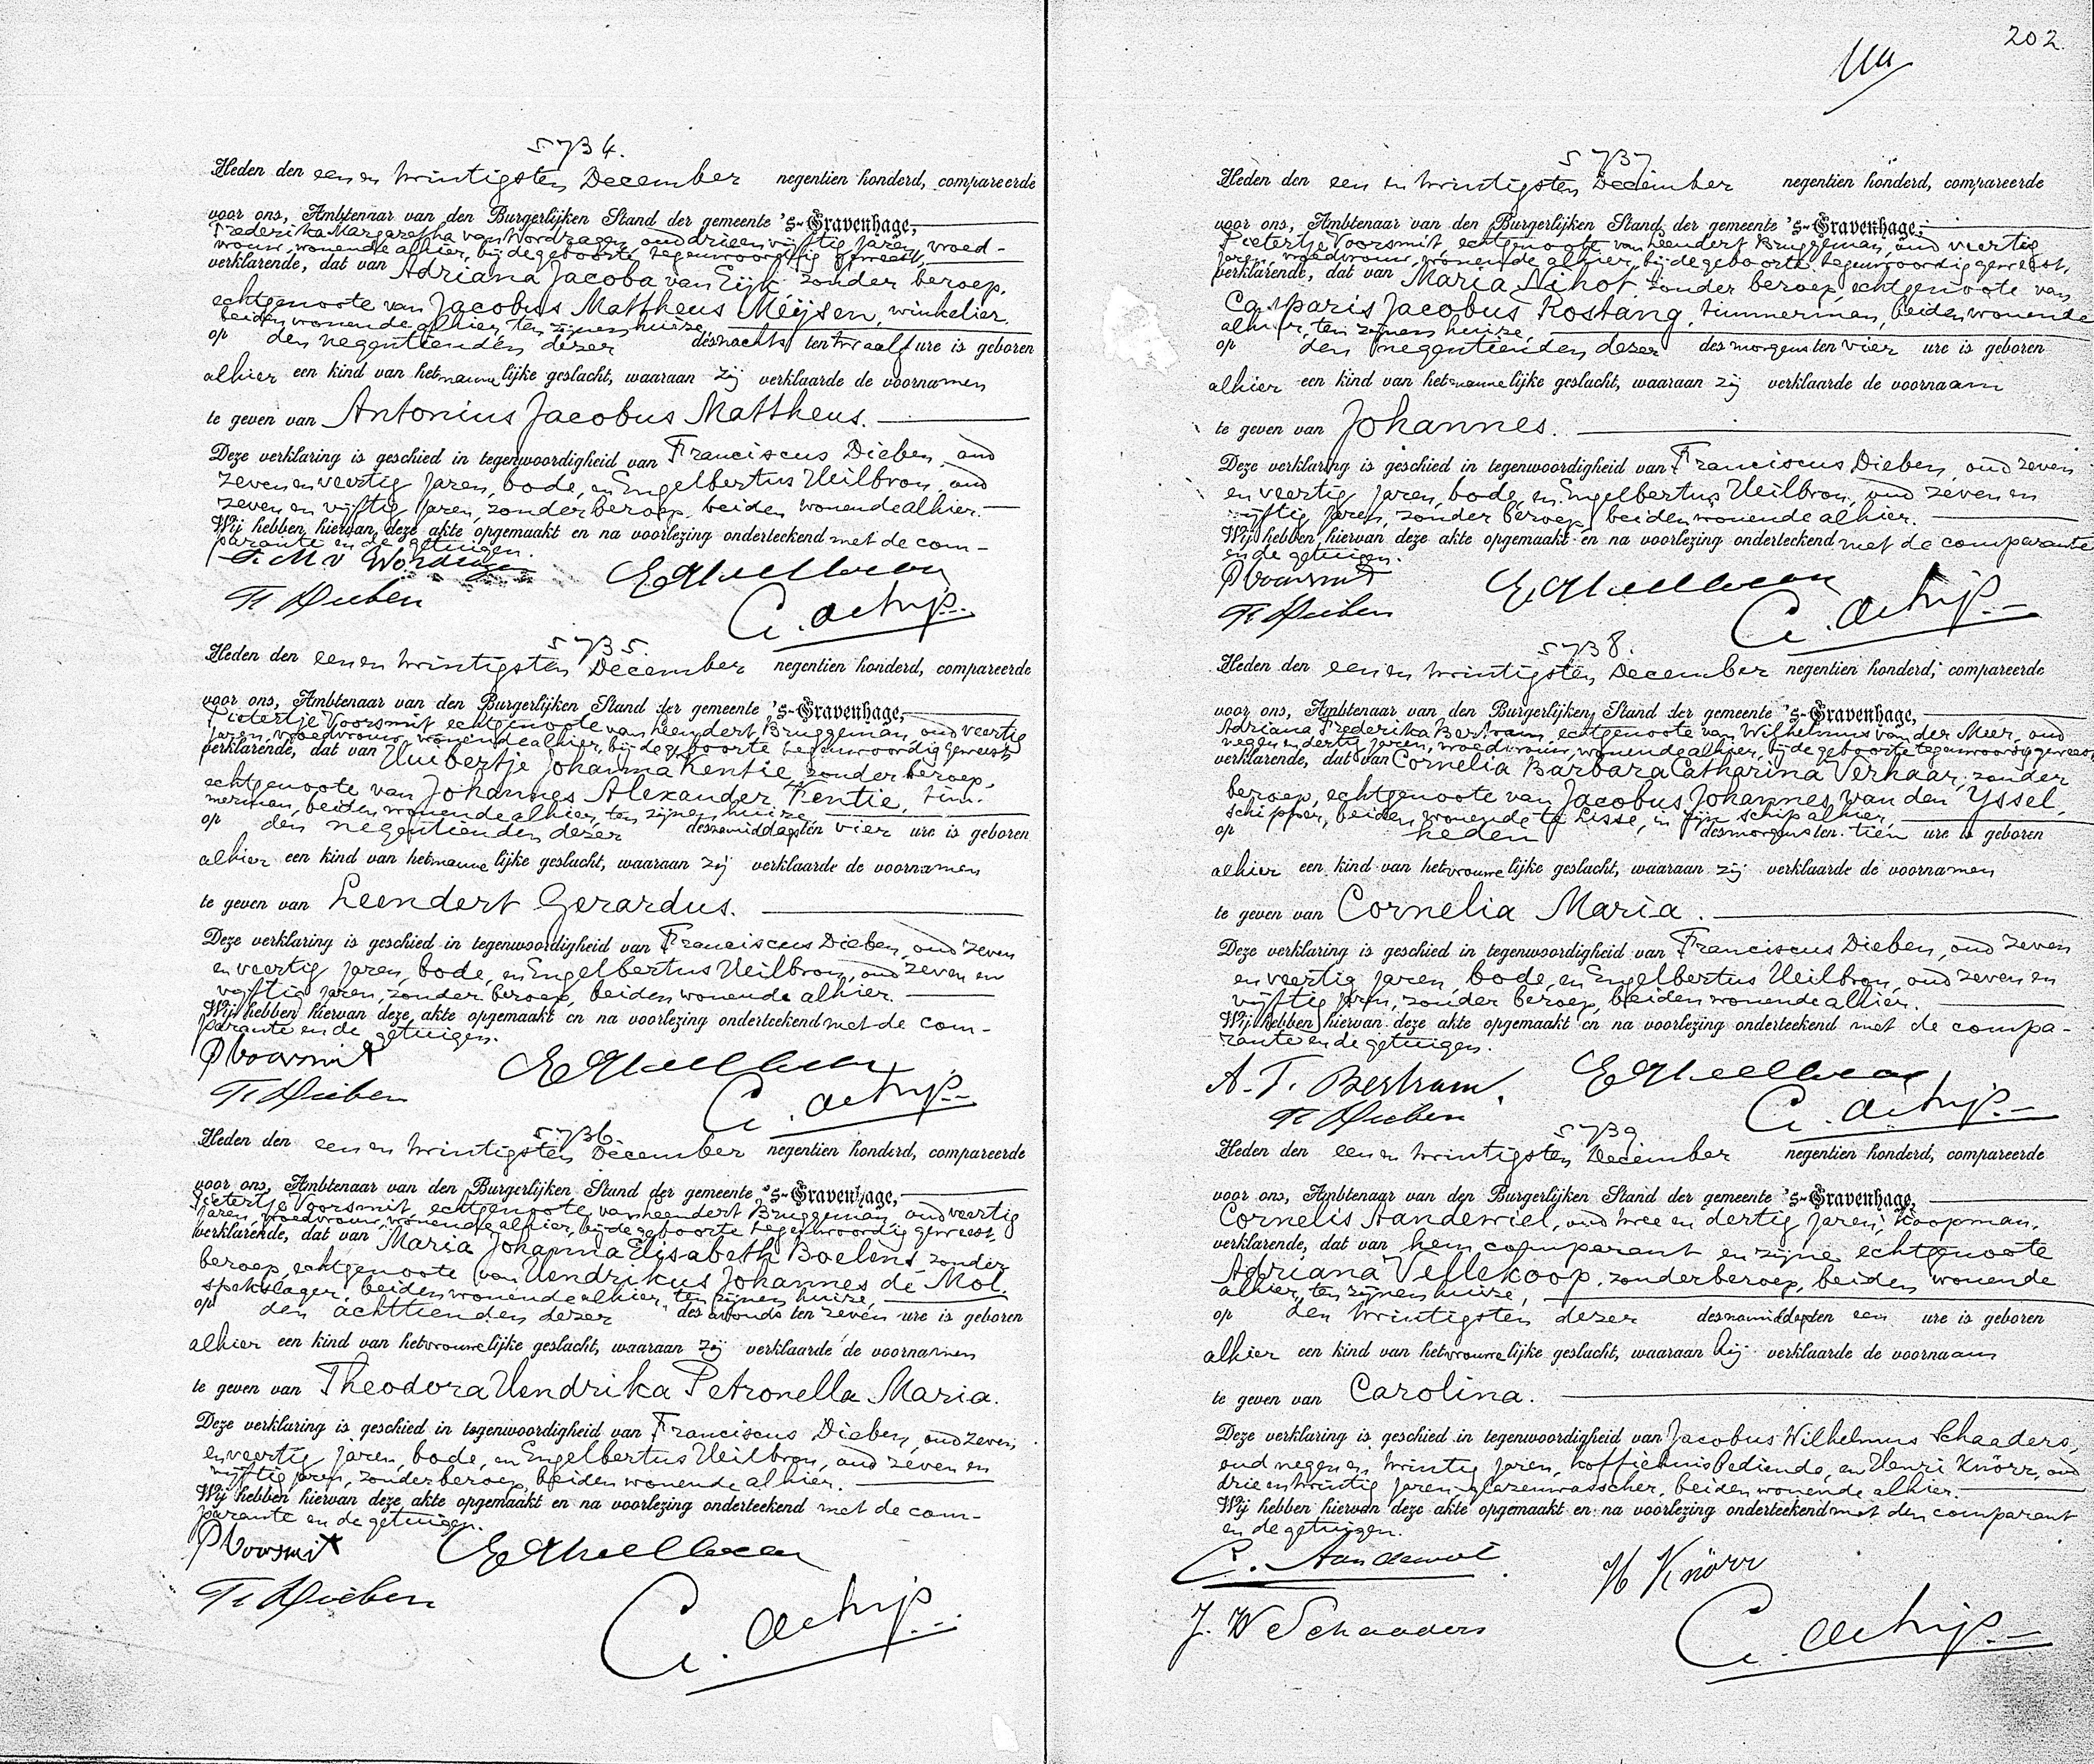 5734.
Heden den een en twintigsten December negentien honderd, compareerde
voor ons, Ambtenaar van den Burgerlijken Stand der gemeente 's-Gravenhage,
Frederika Margaretha van Wordragen, oud drieenvijftig jaren, vroed-
vrouw, wonende alhier, bij de geboorte tegenwoordig geweest,
verklarende, dat van Adriana Jacoba van Eijk zonder beroep,
echtgenoote van Jacobus Mattheus Meijsen, winkelier,
beiden wonende alhier, ten zijnen huize,
op den negentienden dezer desnachts ten twaalf ure is geboren
alhier een kind van het mannelijke geslacht, waaraan zij verklaarde de voornamen
te geven van Antonius Jacobus Mattheus.
Deze verklaring is geschied in tegenwoordigheid van Franciscus Dieben, oud
zeven en veertig jaren, bode, en Engelbertus Heilbron, oud
zeven en vijftig jaren, zonder beroep, beiden wonende alhier.
Wij hebben hiervan deze akte opgemaakt en na voorlezing onderteekend met de com-
parante en de getuigen.
F. M. v Wordragen
Fr Dieben
5735.
Heden den een en twintigsten December negentien honderd, compareerde
voor ons, Ambtenaar van den Burgerlijken Stand der gemeente 's-Gravenhage,
Pietertje Voorsmit, echtgenoote van Leendert Bruggeman, oud veertig
jaren, vroedvrouw, wonende alhier, bij de geboorte tegenwoordig geweest,
verklarende, dat van Huibertje Johanna Kentie, zonder beroep,
echtgenoote van Johannes Alexander Kentie, tim-
merman, beiden wonende alhier, ten zijnen huize,
op den negentienden dezer desnamiddags ten vier ure is geboren
alhier een kind van het mannelijke geslacht, waaraan zij verklaarde de voornamen
te geven van Leendert Gerardus.
Deze verklaring is geschied in tegenwoordigheid van Franciscus Dieben, oud zeven
en veertig jaren, bode, en Engelbertus Heilbron, oud zeven en
vijftig jaren, zonder beroep, beiden wonende alhier.
Wij hebben hiervan deze akte opgemaakt en na voorlezing onderteekend met de com-
parante en de getuigen.
P Voorsmit
Fr Dieben
5736.
Heden den een en twintigsten December negentien honderd, compareerde
voor ons, Ambtenaar van den Burgerlijken Stand der gemeente 's-Gravenhage,
Pietertje Voorsmit, echtgenoote van Leendert Bruggeman, oud veertig
jaren, vroedvrouw, wonende alhier, bij de geboorte tegenwoordig geweest,
verklarende, dat van Maria Johanna Elisabeth Boelens, zonder
beroep, echtgenoote van Hendrikus Johannes de Mol,
spekslager, beiden wonende alhier, ten zijnen huize,
op den achttienden dezer des avonds ten zeven ure is geboren
alhier een kind van het vrouwelijke geslacht, waaraan zij verklaarde de voornamen
te geven van Theodora Hendrika Petronella Maria.
Deze verklaring is geschied in tegenwoordigheid van Franciscus Dieben, oud zeven
en veertig jaren, bode, en Engelbertus Heilbron, oud zeven en
vijftig jaren, zonder beroep, beiden wonende alhier.
Wij hebben hiervan deze akte opgemaakt en na voorlezing onderteekend met de com-
parante en de getuigen.
P Voorsmit
Fr Dieben
202
5737
Heden den een en twintigsten December negentien honderd, compareerde
voor ons, Ambtenaar van den Burgerlijken Stand der gemeente 's-Gravenhage,
Pietertje Voorsmit, echtgenoote van Leendert Bruggeman, oud veertig
jaren, vroedvrouw, wonende alhier, bij de geboorte tegenwoordig geweest,
verklarende, dat van Maria Nihot, zonder beroep, echtgenoote van
Casparis Jacobus Rostang, timmerman, beiden wonende
alhier, ten zijnen huize,
op den negentienden dezer des morgens ten vier ure is geboren
alhier een kind van het mannelijke geslacht, waaraan zij verklaarde de voornaam
te geven van Johannes.
Deze verklaring is geschied in tegenwoordigheid van Franciscus Dieben, oud zeven
en veertig jaren, bode, en Engelbertus Heilbron, oud zeven en
vijftig jaren, zonder beroep, beiden wonende alhier.
Wij hebben hiervan deze akte opgemaakt en na voorlezing onderteekend met de comparante
en de getuigen.
P Voorsmit
Fr Dieben
5738.
Heden den een en twintigsten December negentien honderd, compareerde
voor ons, Ambtenaar van den Burgerlijken Stand der gemeente 's-Gravenhage,
Adriana Frederika Bertram, echtgenoote van Wilhelmus van der Meer, oud
negen en dertig jaren, vroedvrouw, wonende alhier, bij de geboorte tegenwoordig geweest,
verklarende, dat van Cornelia Barbara Catharina Verhaar, zonder
beroep, echtgenoote van Jacobus Johannes van den Yssel,
schipper, beiden wonende te Lisse, in zijn schip alhier,
op heden desmorgens ten tien ure is geboren
alhier een kind van het vrouwelijke geslacht, waaraan zij verklaarde de voornamen
te geven van Cornelia Maria.
Deze verklaring is geschied in tegenwoordigheid van Franciscus Dieben, oud zeven
en veertig jaren, bode, en Engelbertus Heilbron, oud zeven en
vijftig jaren, zonder beroep, beiden wonende alhier.
Wij hebben hiervan deze akte opgemaakt en na voorlezing onderteekend met de compa-
rante en de getuigen.
A. F. Bertram.
Fr Dieben
5739
Heden den een en twintigsten December negentien honderd, compareerde
voor ons, Ambtenaar van den Burgerlijken Stand der gemeente 's-Gravenhage,
Cornelis Aandewiel, oud twee en dertig jaren, koopman,
verklarende, dat van hem comparant en zijne echtgenoote
Adriana Vellekoop, zonder beroep, beiden wonende
alhier, ten zijnen huize,
op den twintigsten dezer desnamiddags ten een ure is geboren
alhier een kind van het vrouwelijke geslacht, waaraan hij verklaarde de voornaam
te geven van Carolina.
Deze verklaring is geschied in tegenwoordigheid van Jacobus Wilhelmus Schaaders,
oud negen en twintig jaren, koffiehuisbediende, en Henri Knörr, oud
drie en twintig jaren, glazenwasscher, beiden wonende alhier.
Wij hebben hiervan deze akte opgemaakt en na voorlezing onderteekend met den comparant
en de getuigen.
C. Aandewiel
H Knörr
J. W Schaaders